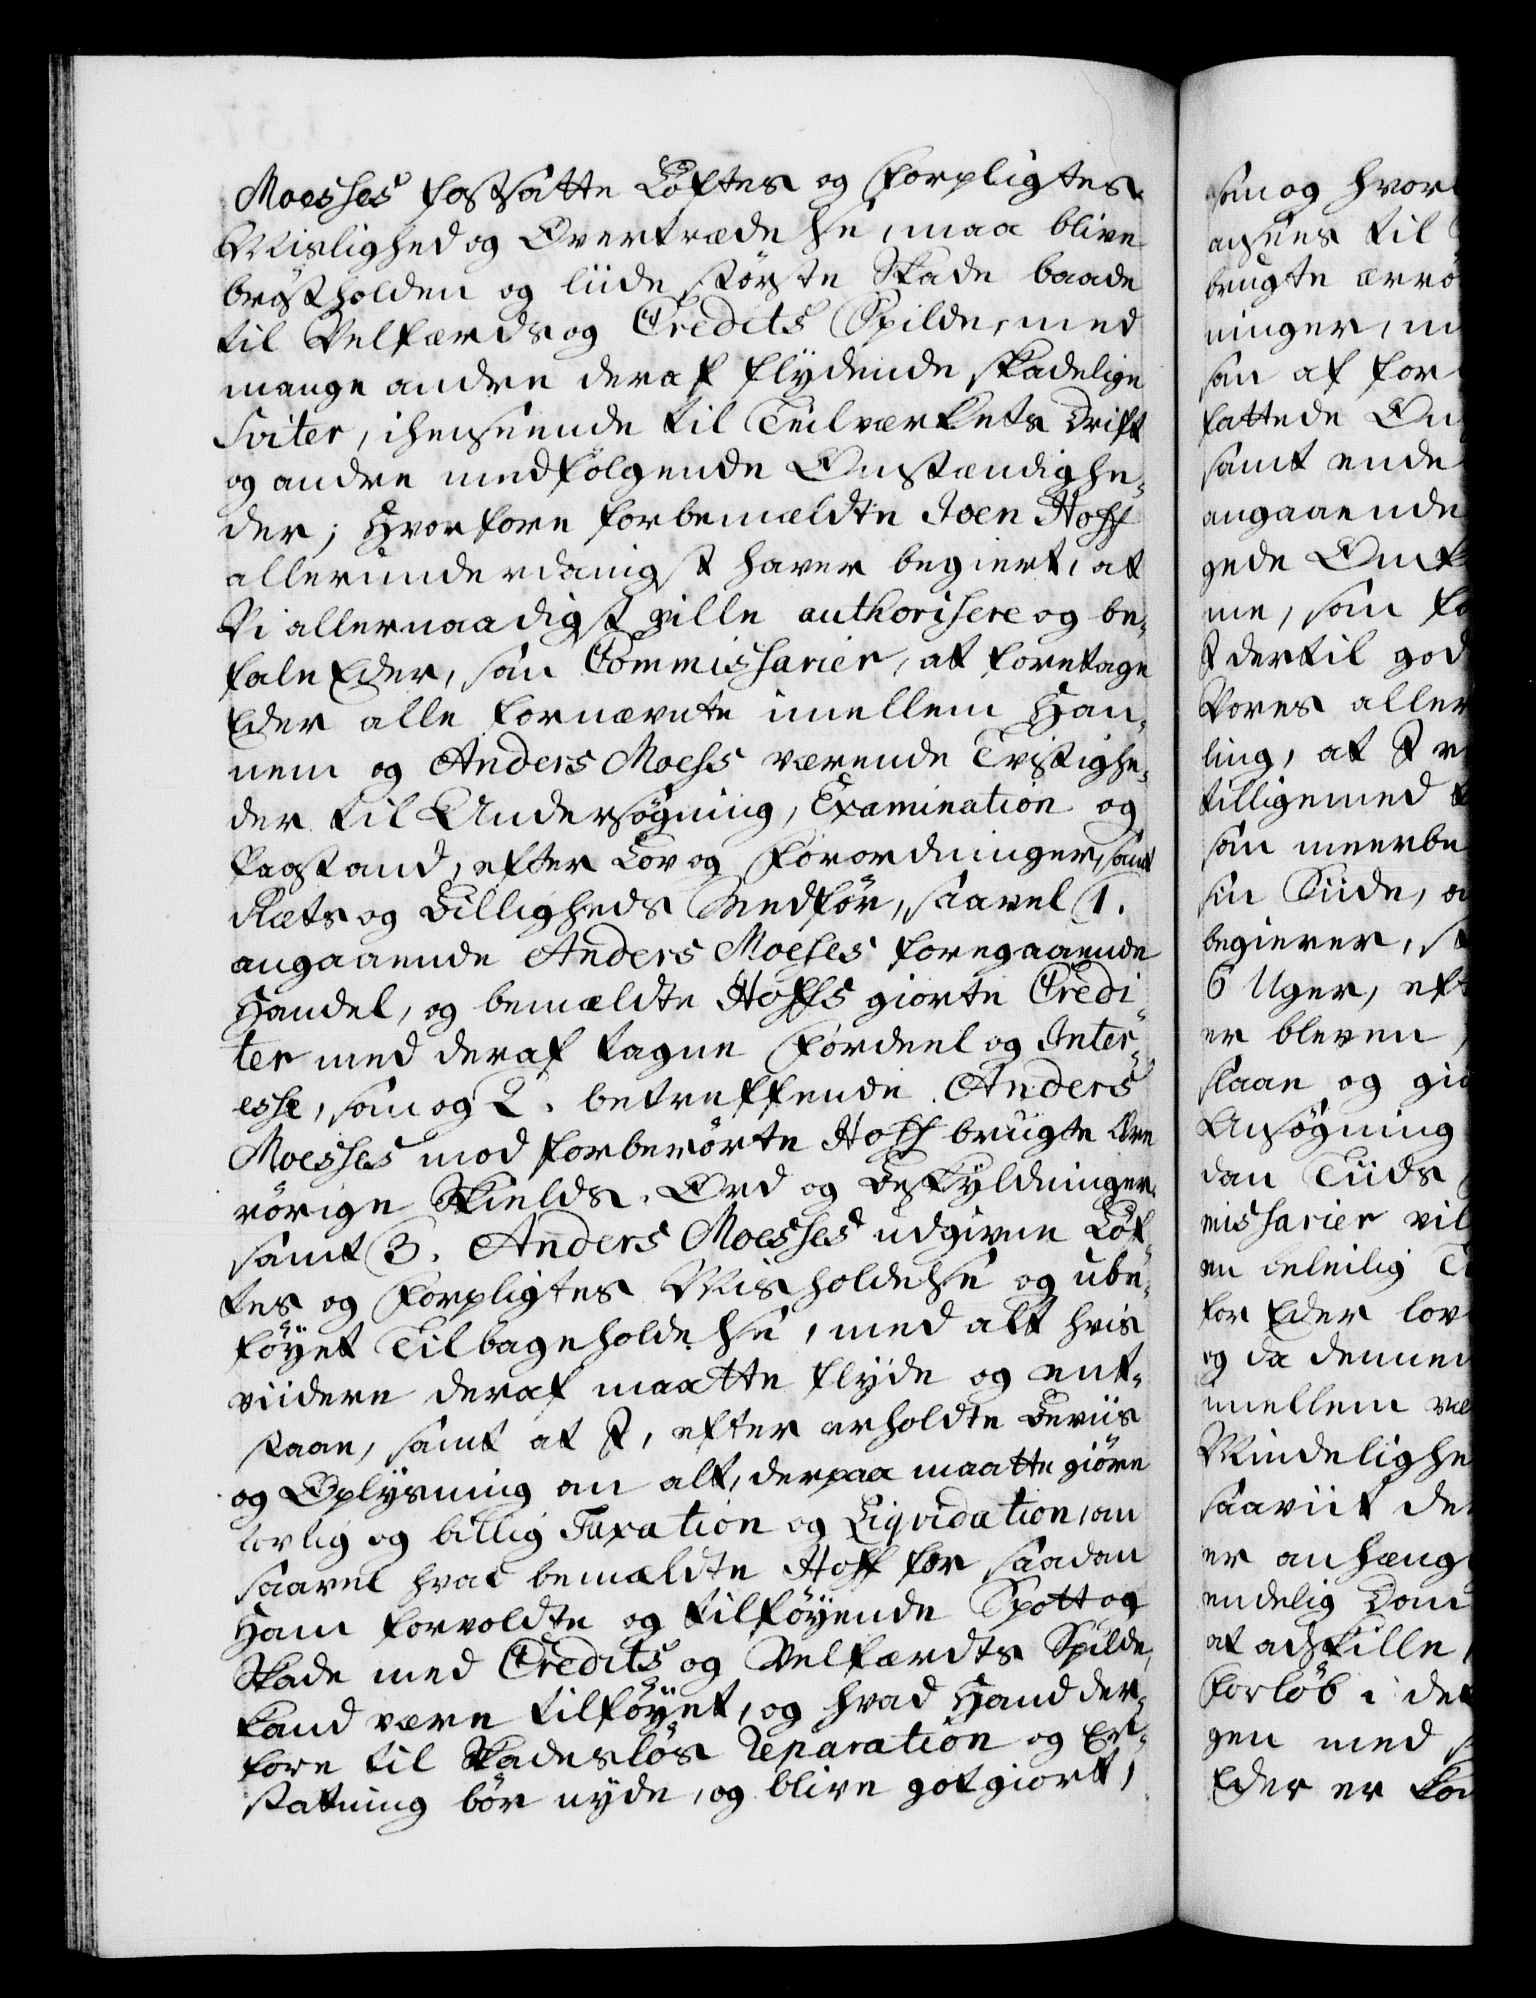 Moesses fastsatte Løftes og Forpligtes
Mislighed og Overtrædelse, maa blive
brøstholden og liide største Skade baade
til Velfærds og Credits Spilde, med
mange andre deraf flydende skadelige
Sviter, i henseende til Teilværkets Drift
og andre medfølgende Omstændighe-
der; Hvorfore forbemældte Joen Hoff
allerunderdanigst haver begiert, at
Vi allernaadigst ville authorisere og be-
fale Eder, som Commissarier, at foretage
Eder alle fornævnte imellem Han-
nem og Anders Moess værende Tvistighe-
der til Undersøgning, Examination og
Paastand, efter Lov og Forordninger, samt
Rets og Billigheds Medfør, saavel 1.
angaaende Anders Moeses foregaaende
Handel, og bemældte Hoffs giorte Credi-
ter med deraf tagne Fordeel og Inter-
esse, som og 2. betreffende Anders
Moesses mod forberørte Hoff brugte Ære
rørige Skields-Ord og Beskyldninger
samt 3. Anders Moesses udgivne Løf-
tes og Forpligtes Misholdelse og ube-
føyet Tilbageholdelse, med alt hvis
viidere deraf maatte flyde og ent-
staae, samt at I, efter erholdte Beviis
og Oplysning om alt, derpaa maatte giøre
lovlig og billig Taxation og Liqvidation, om
saavel hvad bemældte Hoff for saadan
Ham forvoldte og tilføyende Spott og
Skade med Credits og Velfærdts Spilde,
kand være tilføyet, og hvad Hand der-
fore til Skadesløs Reparation og Er-
statning bør nyde, og blive gotgiort,
som og hvor
ansees til
brugte ærrø
ninger, m
som af for
fattede Om
samt ende
angaaende
gede Omk
me, som fo
I dertil god
Vores aller
ling, at I v
tilligemed
som meerbe
sin Siide, o
begierer, st
6 Uger, eft
er bleven
slaae og gio
Ansøgning
dan Tiids
missarier vil
en beleilig Ti
for Eder lov
og da dennem
imellem væ
Mindelighe
saaviit der
er anhæng
endelig Dom
at adskille
Forløb i det
gen med
Eder er for